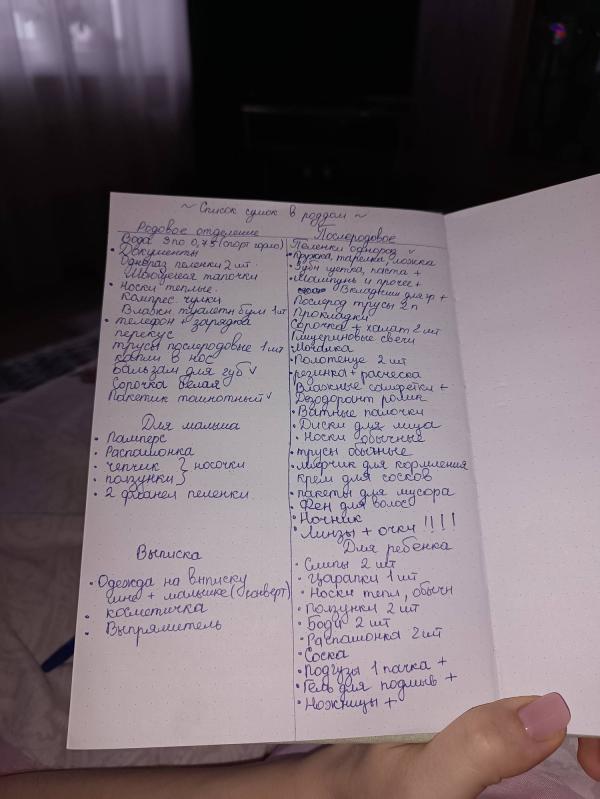 ~ Список сумок в роддом ~
Родовое отделение
Вода 3 по 0,75 (спорт горло)
• Документы
Однораз пеленки 2 шт.
Моющиеся тапочки
• Носки теплые.
Компрес. чулки
Влажн туалетн бум 1 шт
• телефон + зарядка
перекус
трусы послеродовые 1 шт
капли в нос
бальзам для губ ✓
Сорочка белая
Пакетик тошнотный ✓
Для малыша
• Памперс
• Распашонка
• чепчик } носочки
• ползунки }
• 2 фланел пеленки.
Выписка
• Одежда на выписку
мне + малышке (конверт)
• косметичка
• Выпрямитель
Послеродовое
Пеленки однораз ✓
• Кружка, тарелка, ложка
• Зубн щетка, паста +
• Шампунь и прочее +
Вкладыши для гр +
Послерод трусы 2 п
Прокладки
Сорочка + халат 2 шт
Глицериновые свечи
• Мочалка
• Полотенце 2 шт
• резинка + расческа
Влажные салфетки +
Дезодорант ролик
• Ватные палочки
• Диски для лица
• Носки обычные
• трусы обычные
• лифчик для кормления
крем для сосков
• пакеты для мусора
• Фен для волос
• Ночник
• Линзы + очки !!!!
Для ребенка
• Слипы 2 шт
• Царапки 1 шт
• Носки тепл, обычн
• Ползунки 2 шт
• Боди 2 шт
• Распашонка 2 шт
• Соска
• Подгузы 1 пачка +
• Гель для подмыв +
• Ножницы +